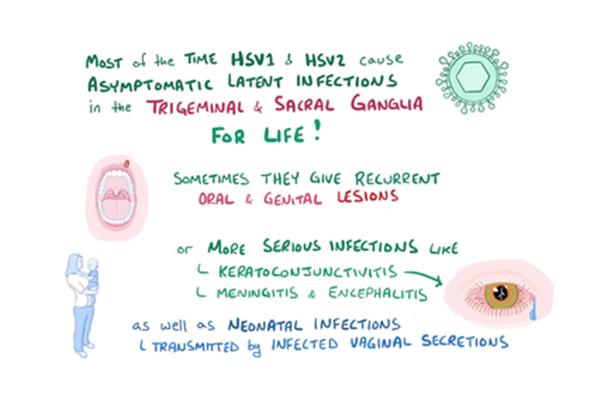 MOST of the TIME HSV1 & HSV2 cause
ASYMPTOMATIC LATENT INFECTIONS
in the TRIGEMINAL & SACRAL GANGLIA
FOR LIFE!
SOMETIMES THEY GIVE RECURRENT
ORAL & GENITAL LESIONS
or MORE SERIOUS INFECTIONS LIKE
KERATOCONJUNCTIVITIS
MENINGITIS & ENCEPHALITIS
as well as NEONATAL INFECTIONS
TRANSMITTED by INFECTED VAGINAL SECRETIONS